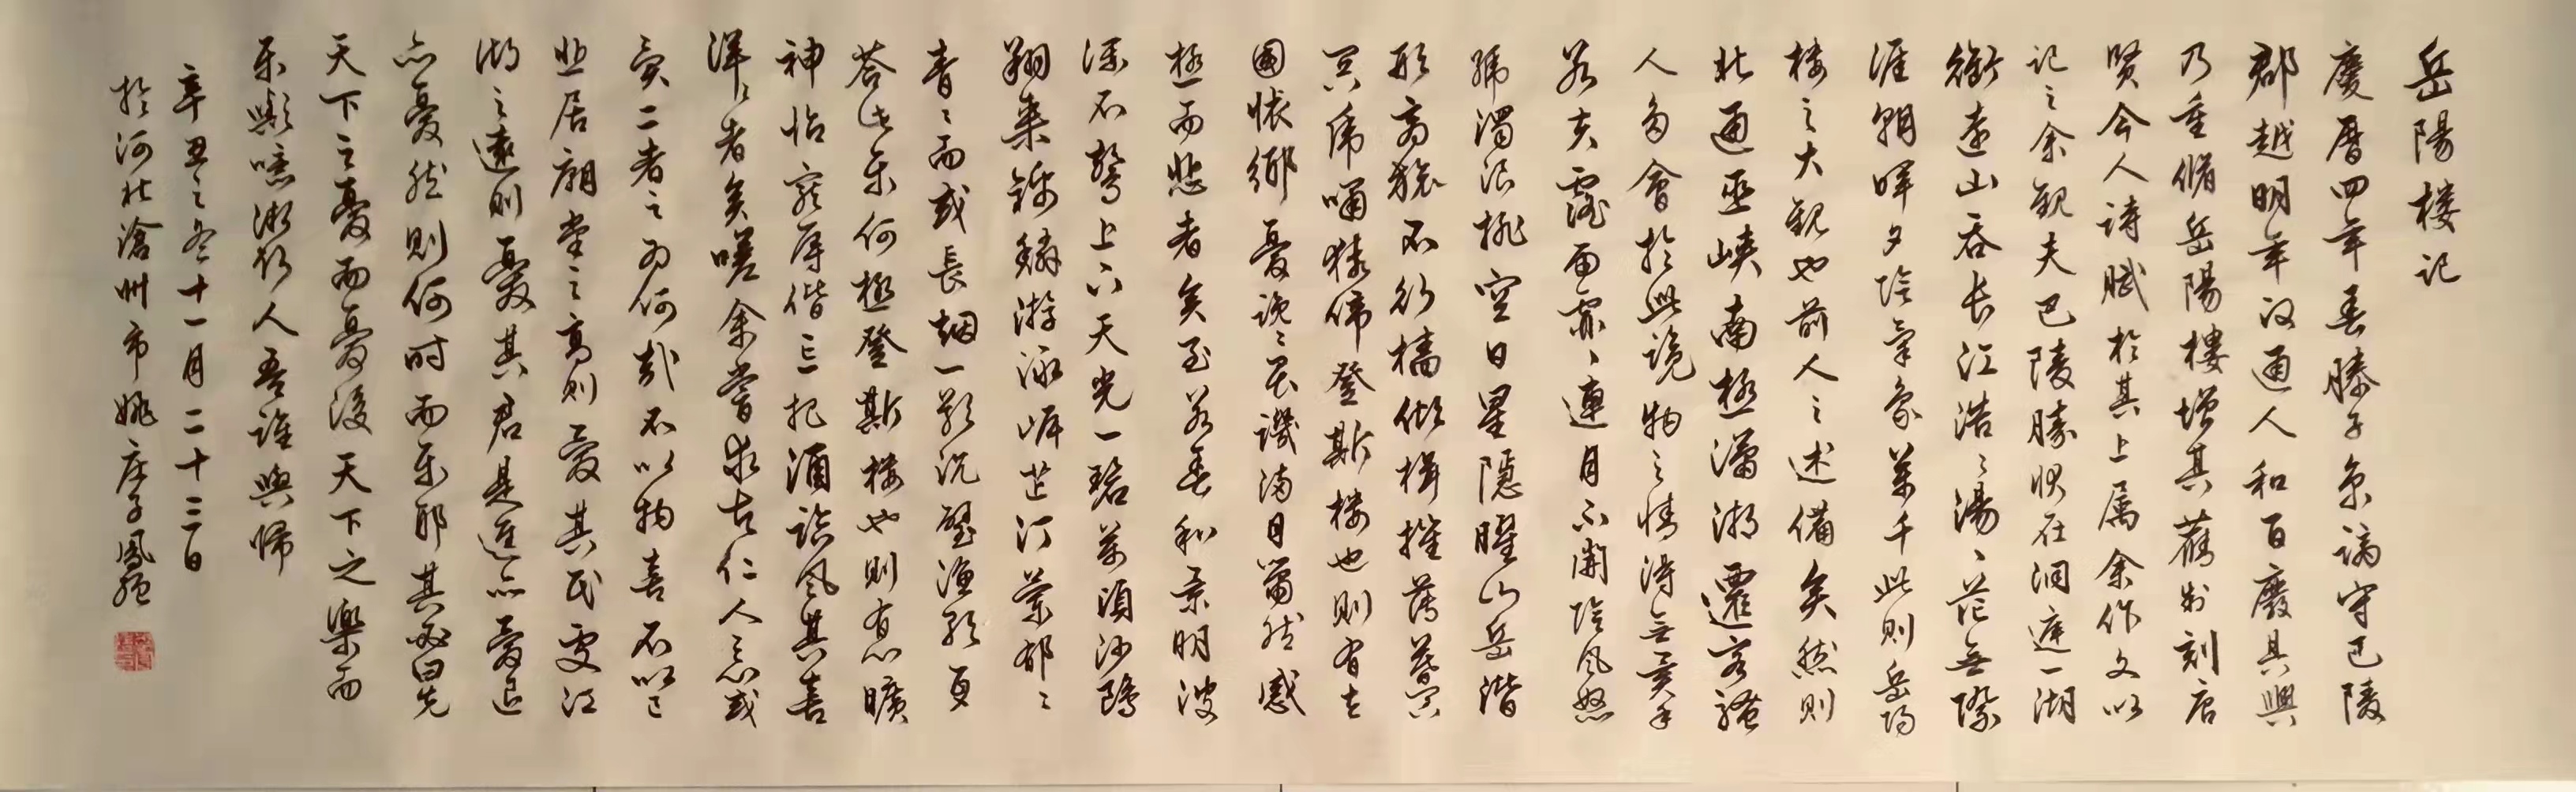 岳陽楼记
慶曆四年春滕子京谪守巴陵
郡越明年政通人和百廢具興
乃重脩岳陽樓增其舊制刻唐
贤今人诗賦於其上属余作文以
记之余觀夫巴陵勝狀在洞庭一湖
銜遠山吞长江浩〻湯〻茫無際
涯朝暉夕陰氣象萬千此則岳陽
楼之大觀也前人之述備矣然则
北通巫峡南極瀟湘遷客骚
人多會於此覽物之情得無異乎
若夫霪雨霏〻連月不開陰風怒
號濁浪排空日星隱曜山岳潛
形商旅不行檣傾楫摧薄暮冥
冥虎嘯猿啼登斯楼也则有去
國懷鄉憂讒〻畏譏滿目萧然感
極而悲者矣至若春和景明波
瀾不驚上下天光一碧萬頃沙鷗
翔集錦鱗游泳岸芷汀蘭郁〻
青〻而或長烟一空
答此乐何極登斯楼也則有心曠
神怡寵辱偕忘把酒临风其喜
洋〻者矣嗟余嘗求古仁人之心或
異二者之为何哉不以物喜不以己
悲居廟堂之高则憂其民處江
湖之遠则憂其君是進亦憂退
亦憂然則何时而乐耶其必曰先
天下之憂而憂後天下之樂而
乐歟噫微斯人吾谁與歸
辛丑之冬十一月二十三日
於河北滄州市姚庄子